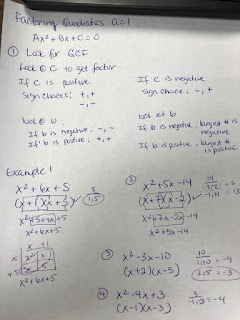 Factoring Quadratics a=1
Ax² + Bx + C = 0
① Look for GCF
Look @ C to get factor
If C is positive
Sign choices: +, +
-, -
look @ b
If b is negative, -, -
If b is positive, +, +
If C is negative
Sign choice, -, +
look at b
If b is negative, largest # is negative
If b is positive, largest # is positive
Example 1
x² + 6x + 5
(x+1)(x+5)
5
1,5
x²+5x+x+5
x²+6x+5
x +1
x x² x
+5 5x 5
x²+6x+5
② x²+5x-14
(x+7)(x-2)
x²+7x-2x-14
x²+5x-14
14
7,-2 = 5
-1,14 = 13
③ x²-3x-10
(x+2)(x-5)
10
1,-10 = -9
2,-5 = -3
④ x²-4x+3
(x-1)(x-3)
3
-1,-3 = -4